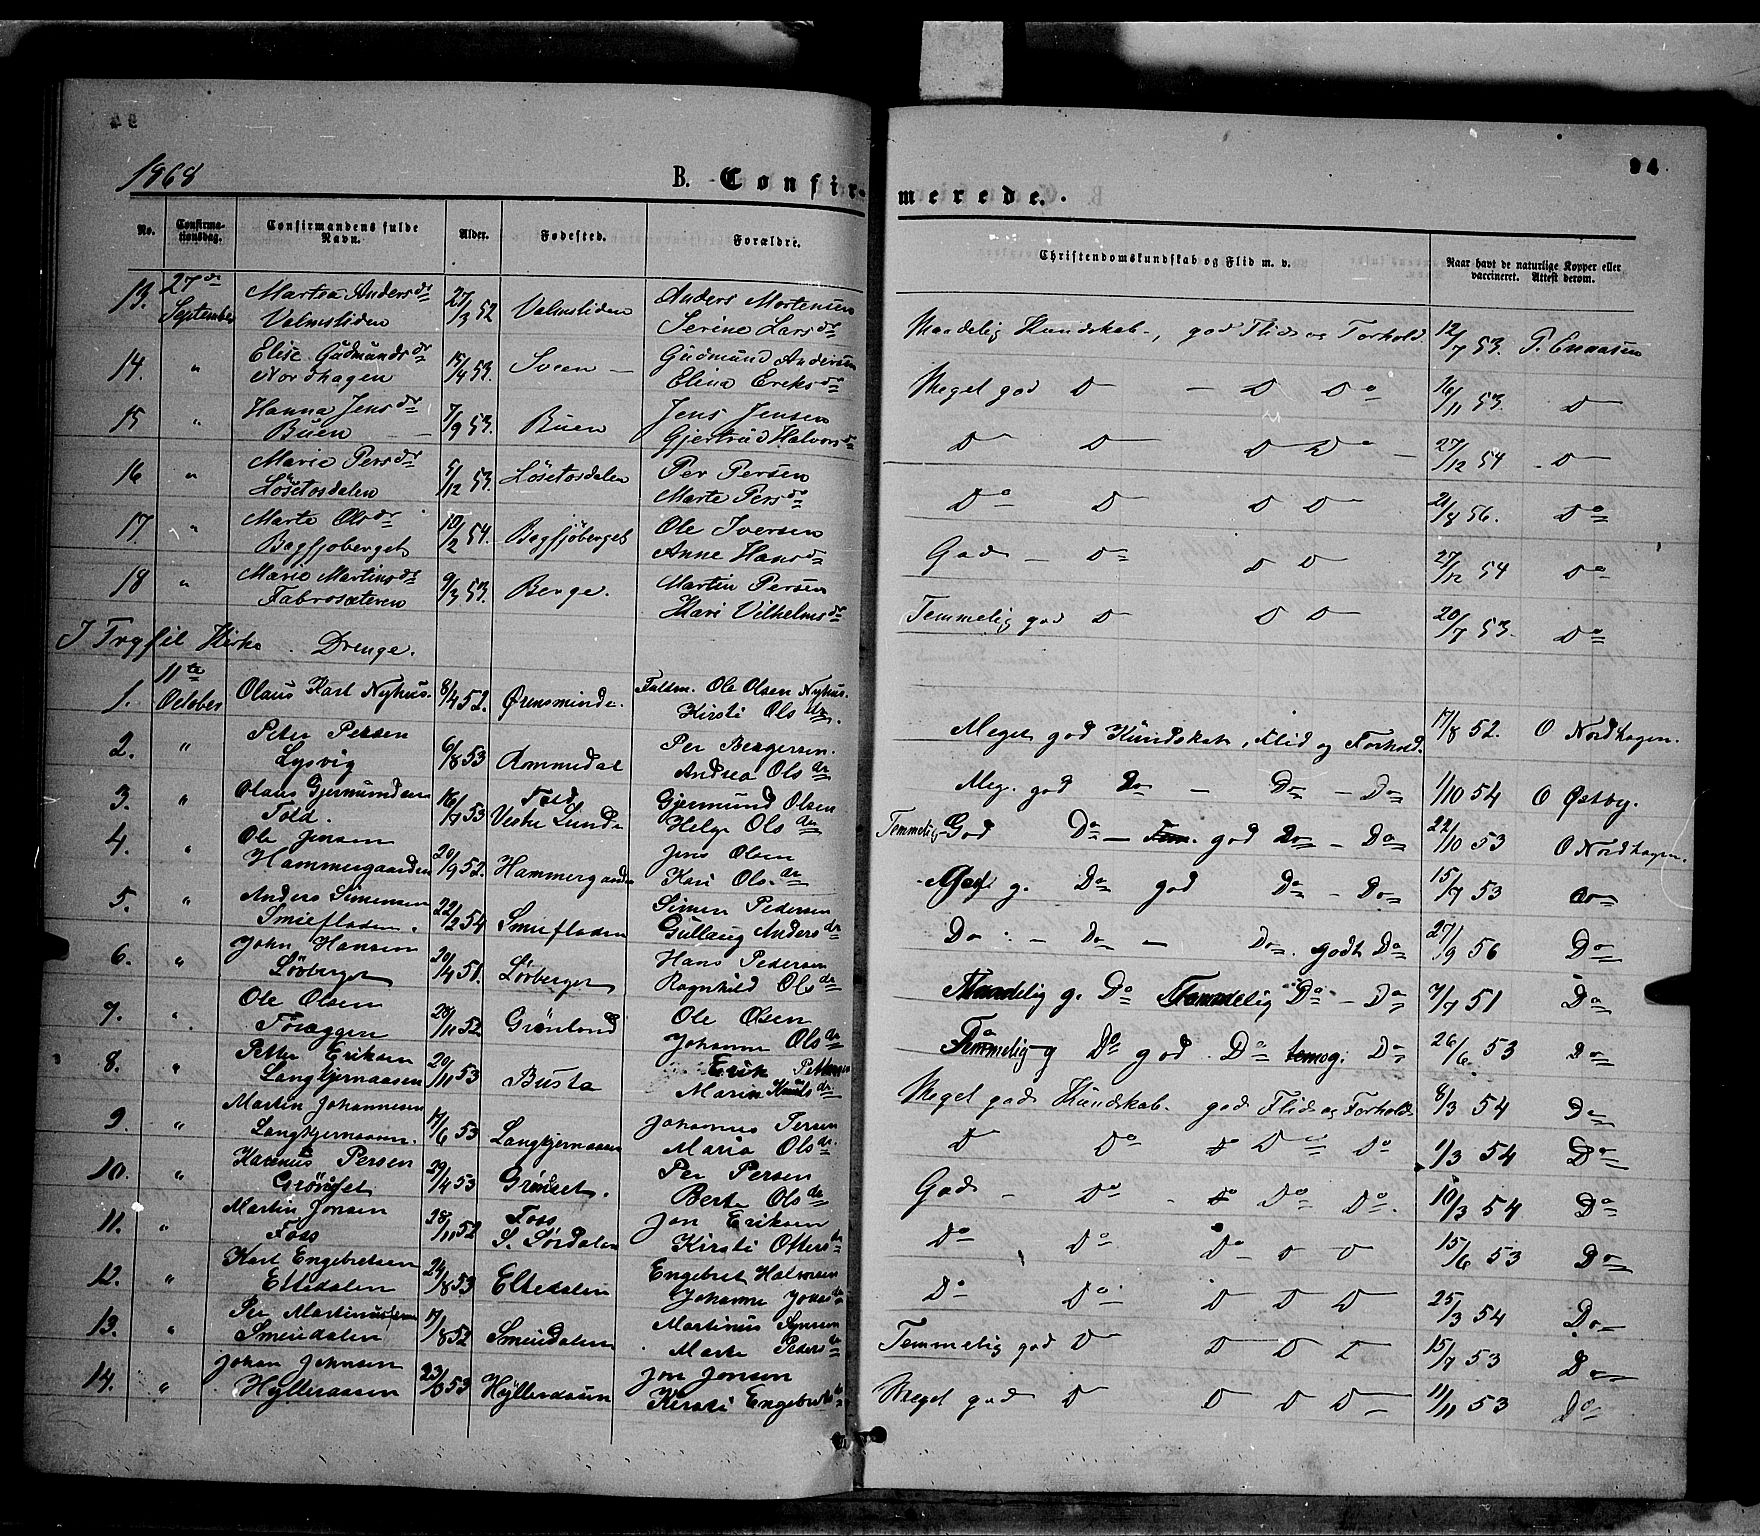 94
1868
B. Confir-
merede.
No.
Confirma-
tionsdag.
Confirmandens fulde
Navn.
Alder.
Fødested.
Forældre.
Christendomskundskab og Flid m. v.
Naar havt de naturlige Kopper eller
vaccineret. Attest derom.
13. 27de September Martea Andersdr Valmsliden 27/3 52 Valmsliden Anders Mortensen Serine Larsdr Maadelig Kundskab, god Flid og Forhold 12/7 53.
14. " Elise Gudmundsdr Nordhagen 15/4 53. Sveen Gudmund Andersen Elina Eriksdr Meget god D - D Do 16/11 53. D
15 " Hanna Jensdr Buen 7/9 53. Buen Jens Jensen Gjertrud Halvorsdr D D D Do 27/12 54 D
16 " Marie Persdr Løsetosdalen 5/12 53. Løsetosdalen Per Persen Marte Persdr Do D D D 21/8 56. Do
17. " Marte Olsdr Bagfjøberget 10/2 54. Bagfjøberget Ole Iversen Anne Hansdr God - Do D D 27/12 54 Do
18 " Marie Martinsdr Fabrosæteren 9/3 53. Berge. Martin Persen Kari Vilhelmsdr Temmelig god D D D 20/7 53. Do
I Trysil Kirke. Drenge.
1. 11te October Olaus Karl Nyhus. 8/4 52. Ørensminde. Ole Olsen Nyhus. Kirsti Olsdr. Meget god Kundskab, Flid og Forhold. 17/8 52. O Nordhagen.
2. " Peter Persen Lysvig 6/8 53 Per Bergersen. Andrea Olsdr Meg. god Do - Do - Do 1/10 54 O Østby.
3. " Olaus Gjermundsen Told. 16/7 53 Told Vestre Lunde Gjermund Olsen Helge Olsdr Temmelig God Do - god Do - Do 22/10 53 O Nordhagen.
4. " Ole Jensen Hammergaarden 20/9 52. Hammergaarden Jens Olsen Kari Olsdr g. Do god Do - Do 15/7 53 Do
5. " Anders Simensen Smiefladen. 22/2 54 Smiefladen Simen Pedersen Gullaug Andersdr Do - Do - Do. godt Do 27/9 56 Do
6. " John Hansen Lörberget 20/4 51. Lörberget Hans Pedersen Ragnhild Olsdr Maadelig g. Do Do - Do 7/7 51 Do
7. " Ole Olsen 28/11 52. Grønland Ole Olsen Johanne Olsdr g Do god. Do temog: Do 26/6 53 Do
8. " Petter Eriksen Langkjernaasen 20/11 53 Busta Erik Pettersen Marin Knutsdr Meget god Kundskab. god Flid og Forhold 8/3 54 Do
9. " Martin Johannesen Langkjernaasen. 17/6 53 Langkjernaasen Johannes Persen Maria Olsdr. D Do D Do Do 1/3 54 Do
10. " Karenus Persen Grønset 29/4 53 Grønset. Per Persen Berte Olsdr God - Do - D Do Do. 10/3 54 Do
11. " Martin Jonsen Foss 28/11 52 Foss S. Sørdalen Jon Eriksen Kirsti Ottersdr Do Do Do - D D 15/6 53 Do
12. " Karl Engebretsen Eltedalen 24/8 53 Eltedalen Engebret Halvorsen Johanne Jonasdr Do Do D D D 25/3 54 Do
13. " Per Martinussen Smeudalen 17/8 52 Smeudalen Martinus Marte Pedersdr Temmelig god D D D D 15/7 53 Do
14. " Johan Johnsen Hylleraasen 23/8 53 Hylleraasen Jon Jonsen Kirsti Engebretsdr Meget god D D D D 11/11 53 Do